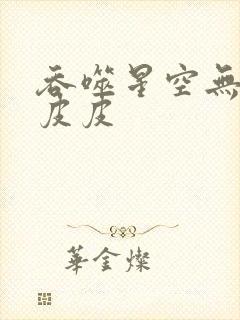 吞噬星空無
皮皮
華金燦